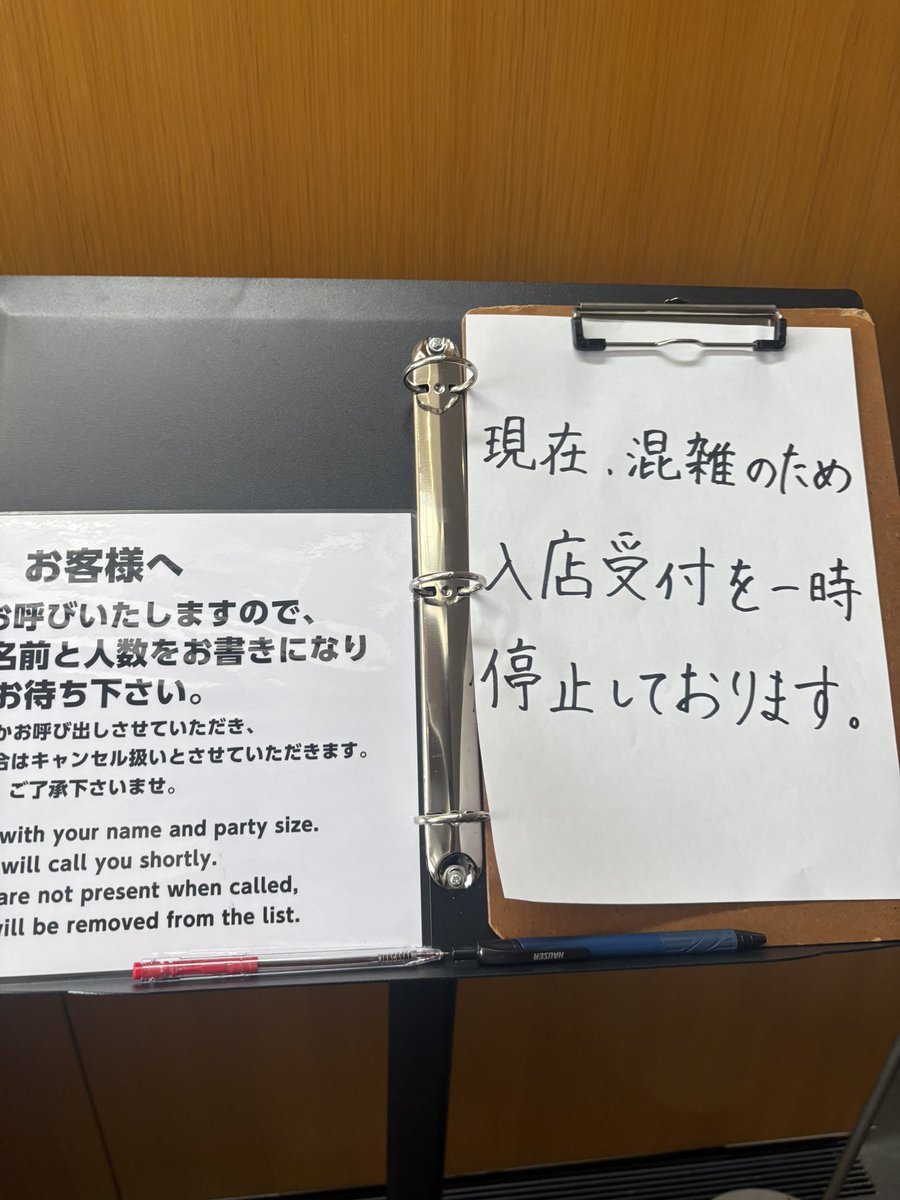 お客様へ
お呼びいたしますので、
名前と人数をお書きになり
お待ち下さい。
かお呼び出しさせていただき、
合はキャンセル扱いとさせていただきます。
ご了承下さいませ。
with your name and party size.
will call you shortly.
are not present when called,
will be removed from the list.
現在、混雑のため
入店受付を一時
停止しております。
HAUSER